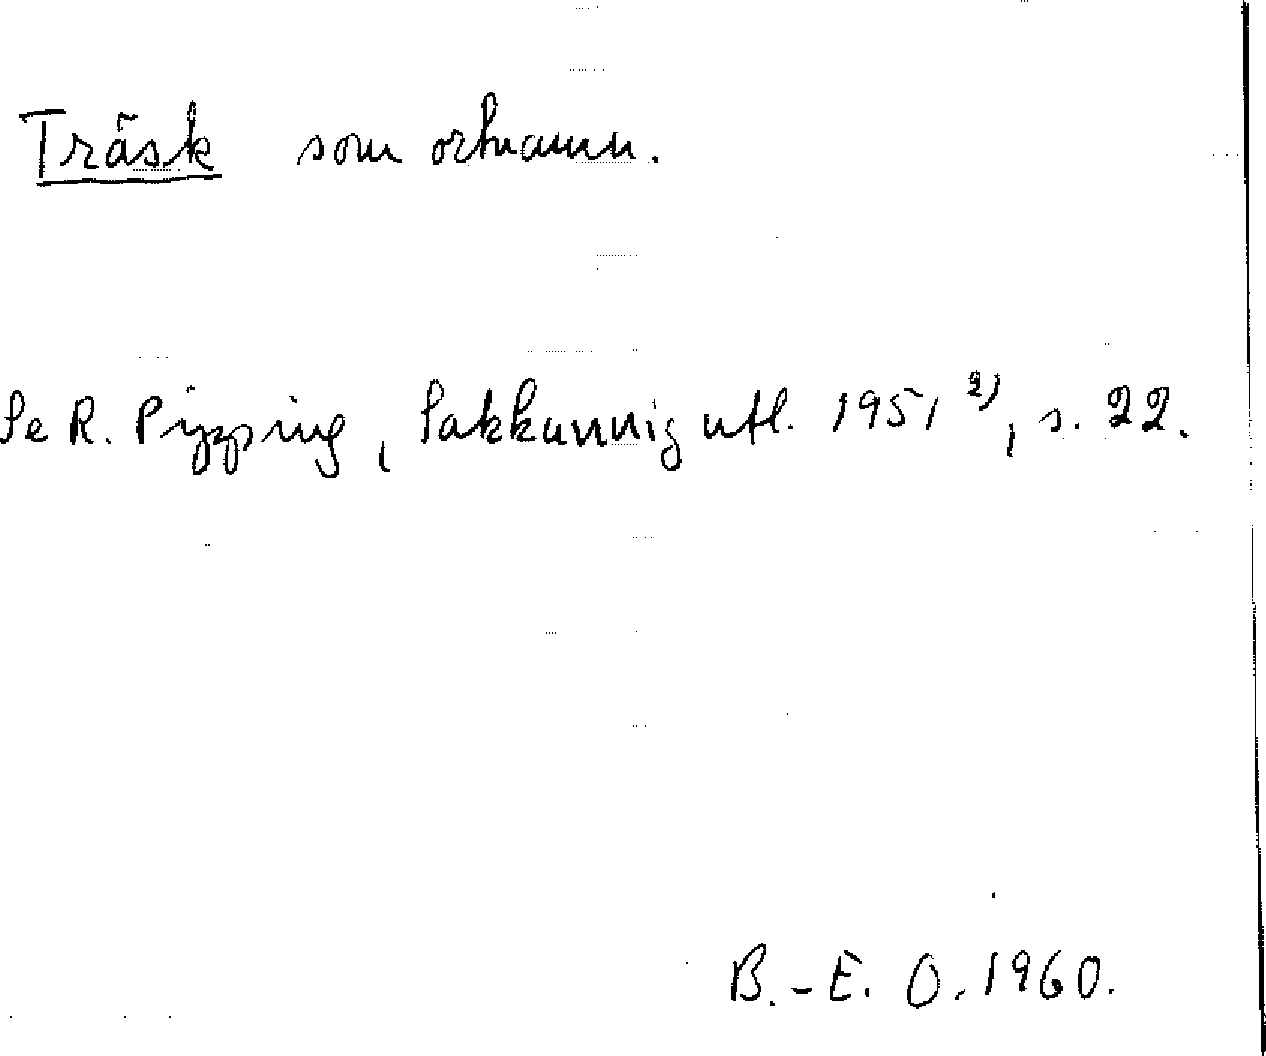 Träsk som ortnamn.
Se R. Pipping, Sakkunnigutl. 1951 2), s. 22.
B.-E. O. 1960.